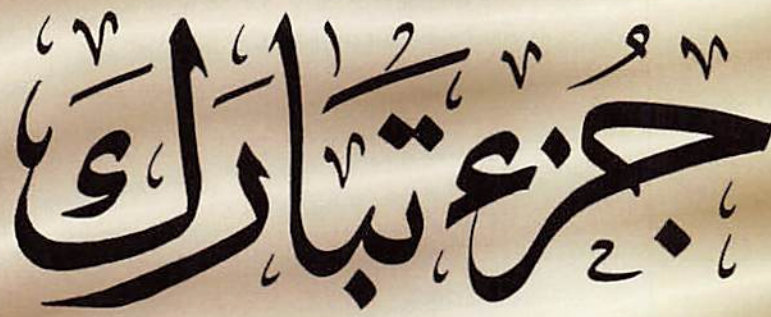 جُزء تَبَارَكَ